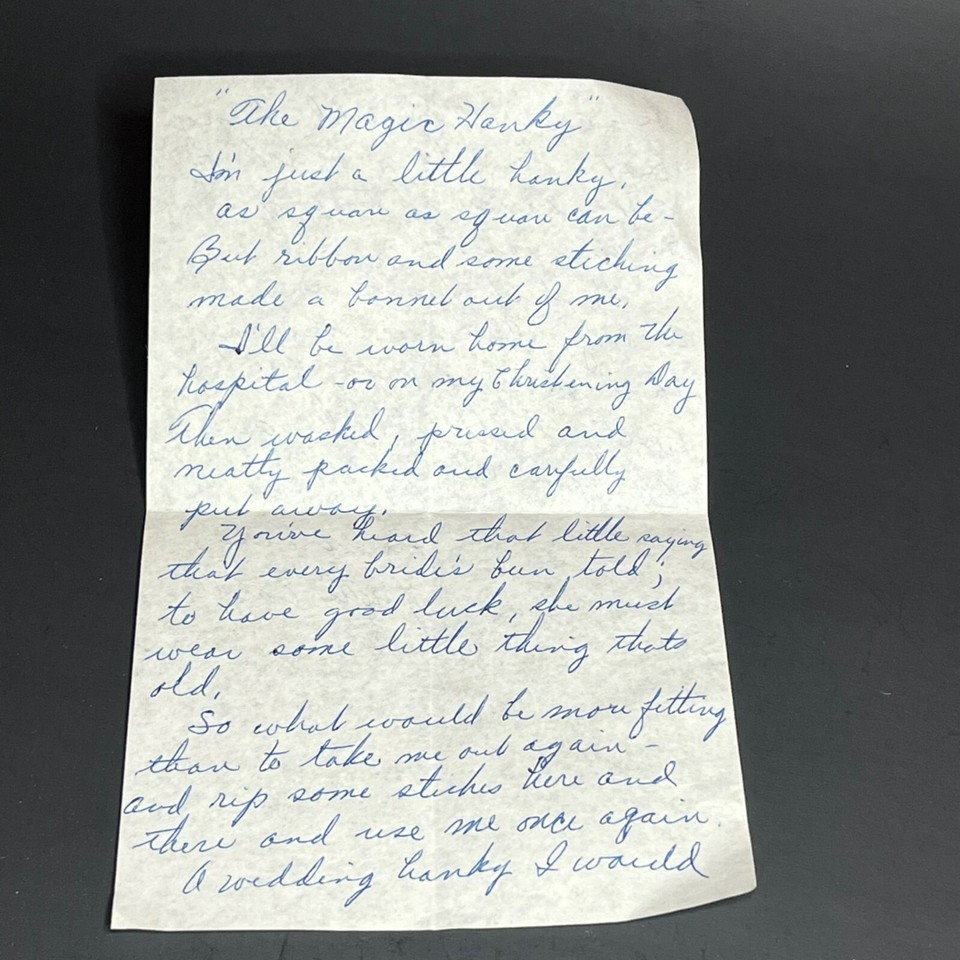 "The Magic Hanky"
I'm just a little hanky,
as square as square can be -
But ribbon and some stiching
made a bonnet out of me,
I'll be worn home from the
hospital - or on my Christening Day
Then washed, pressed and
neatly packed and carfully
put away.
You've heard that little saying
that every bride's bun told;
to have good luck, she must
wear some little thing thats
old.
So what would be more fitting
than to take me out again -
and rip some stiches here and
there and use me once again.
A wedding hanky I would